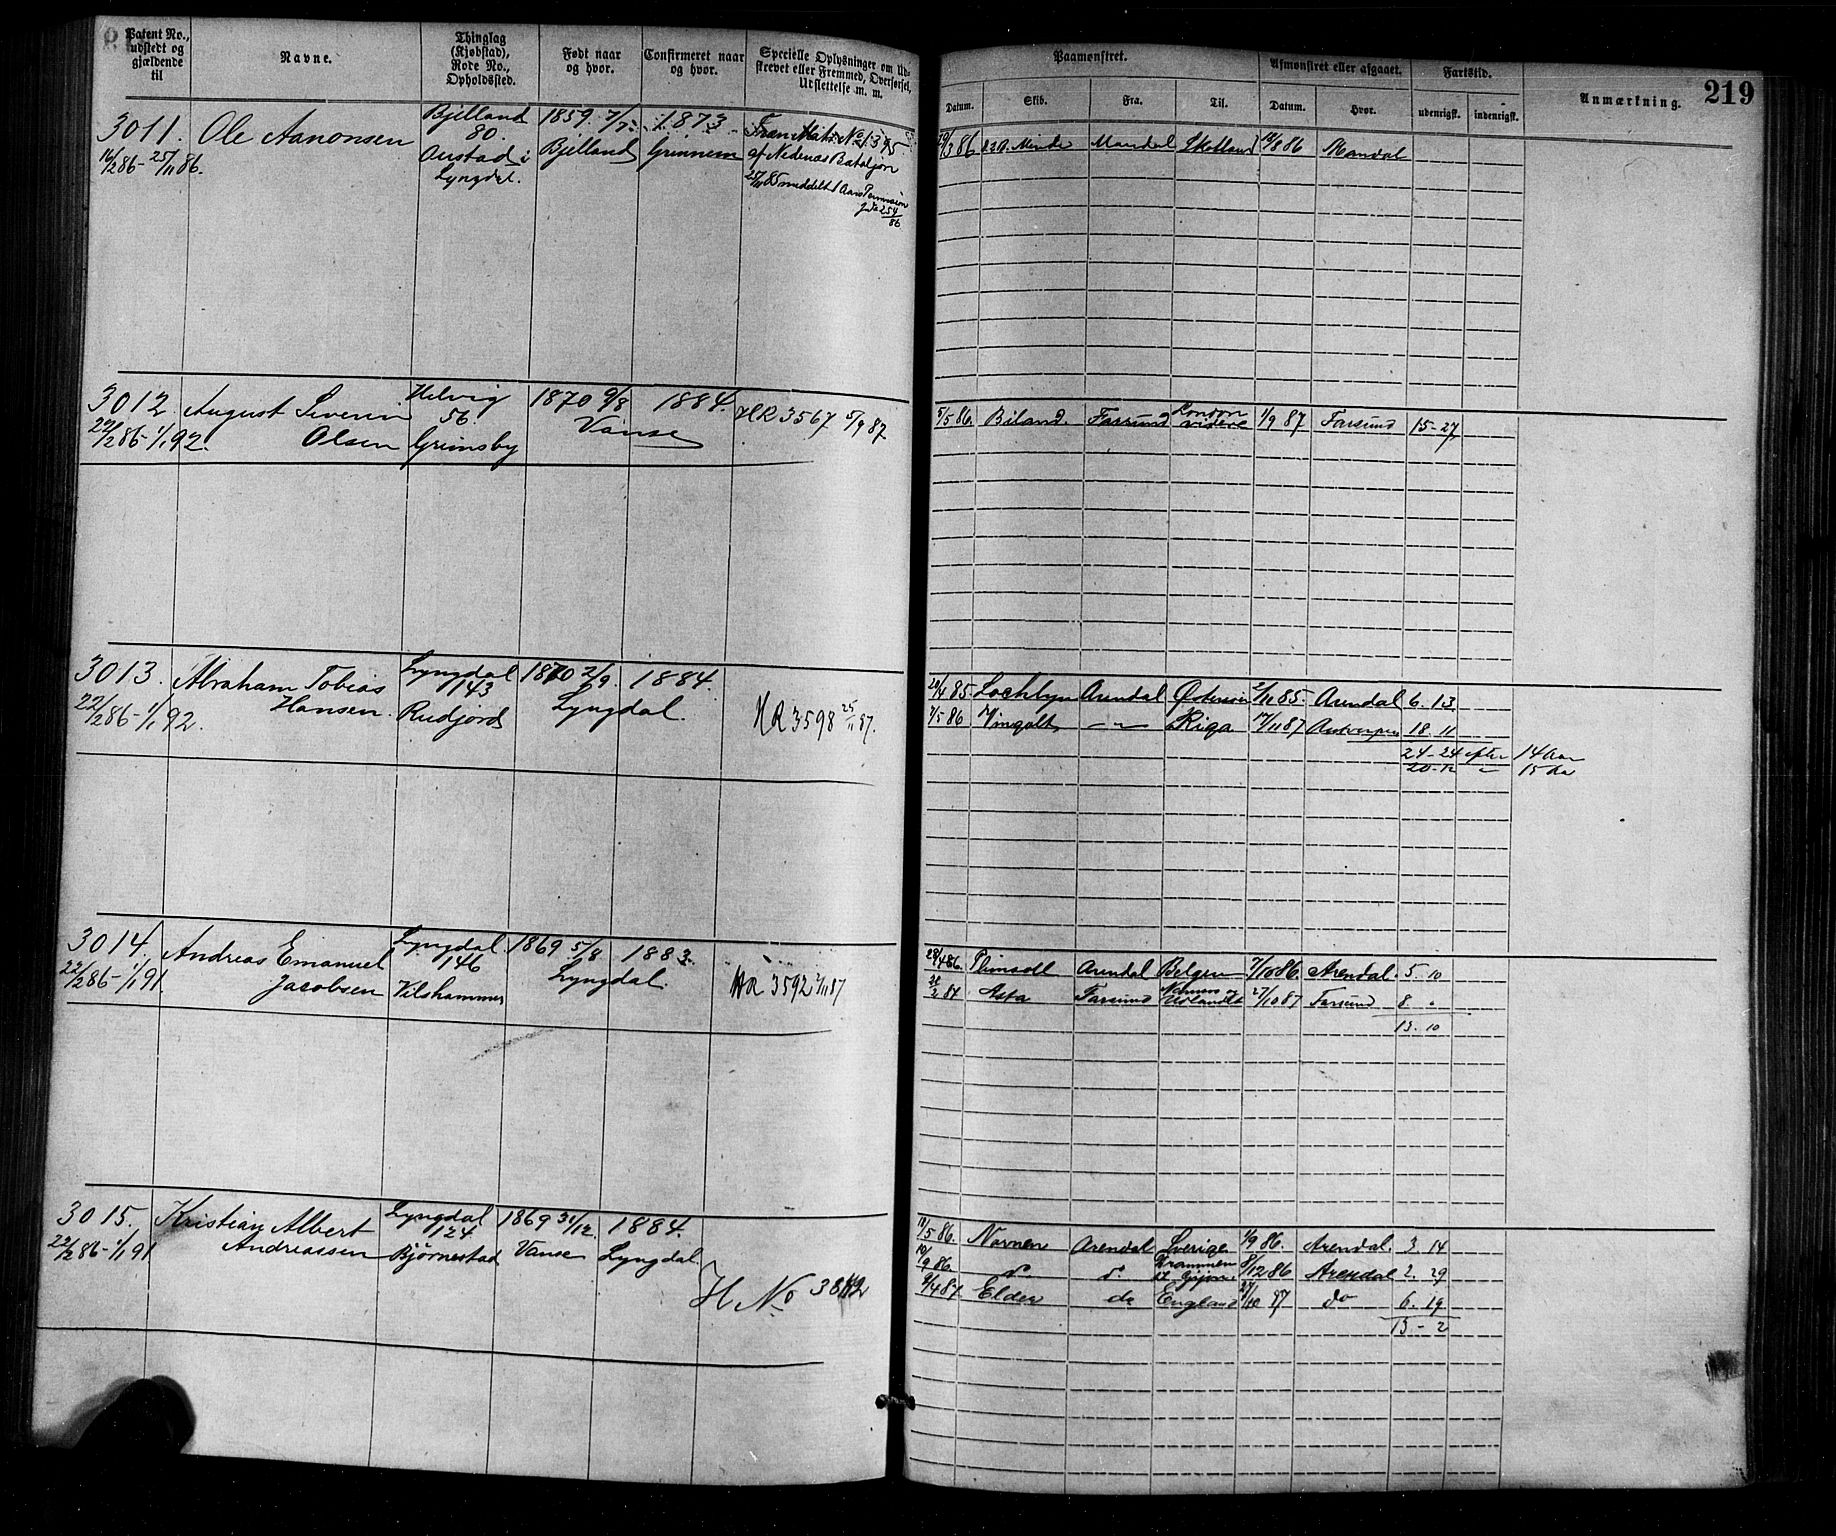 Patent No., udstedt og gjældende til
Navne.
Thinglag (Kjøbstad), Rode No., Opholdssted.
Født naar og hvor.
Confirmeret naar og hvor.
Specielle Oplysninger om Udskrevet eller Fremmed, Overførsel, Udslettelse m. m.
Paamønstret.
Datum.
Skib.
Fra.
Til.
Afmønstret eller afgaaet.
Datum.
Hvor.
Fartstid.
udenrigsk.
indenrigsk.
Anmærkning.
219
3011.
16/2 86 - 25/11 86.
Ole Aanonsen
Bjelland
80.
Austad i
Lyngdal.
1859. 7/7
Bjelland
1873
Grinnem
af Nedenæs Bataljon
25/11 85 meddelt 1 Aars Permission
254/86
86
Minde
Mandal
Skotland
86
Mandal
3012.
22/2 86 - 1/1 92.
August Severin
Olsen
Helvig
56.
Grimsby
1870 9/8
Vanse
1884.
HR 3567 5/9 87
5/5 86.
Biland.
Farsund
London
videre
1/9 87
Farsund
15-27
3013.
22/2 86 - 1/1 92.
Abraham Tobias
Hansen.
Lyngdal
143
Rudjord
1870 2/9.
Lyngdal.
1884.
HR 3598 25/11 87.
20/4 85.
Lochlyn
Arendal
Østersøen
2/11 85
Arendal
6. 13
7/5 86
Vingolf
Riga
17/11 87
Antverpen
18. 11
24-24 efter 14 Aar
20-12 " 15 do
3014.
22/2 86 - 1/1 91.
Andreas Emanuel
Jacobsen
Lyngdal
146
Kilshammer
1869 5/8
Lyngdal.
1883.
HR 3592 2/11 87
28/4 86.
Plimsoll
Arendal
Belgien
7/10 86.
Arendal.
5. 10
Asta
Farsund
Udlandet
27/10 87
Farsund
8. "
13. 10
3015.
22/2 86 - 1/1 91
Kristian Albert
Andreassen
Lyngdal
124
Bjørnestad
1869 31/12.
Vanse
1884.
Lyngdal
H No 3812
10/5 86.
Navnen
Arendal
Sverige
1/9 86.
Arendal.
3. 14
10/9 86.
d.
d.
Drammen
Gijon
8/12 86
Arendal
2. 29
9/4 87.
Elden
do
England
27/10 87
do
6. 19
13 - 2